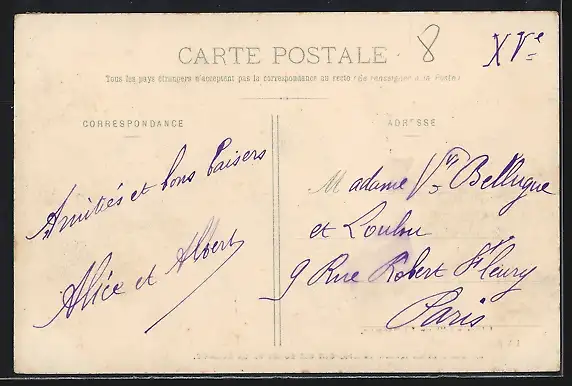 8
XVe
CARTE POSTALE
Tous les pays étrangers n'acceptent pas la correspondance au recto (Se renseigner à la Poste)
CORRESPONDANCE
ADRESSE
Amitiés et bons baisers
Alice et Albert
Madame Vve Bellugue
et Loulou
9 Rue Robert Fleury
Paris